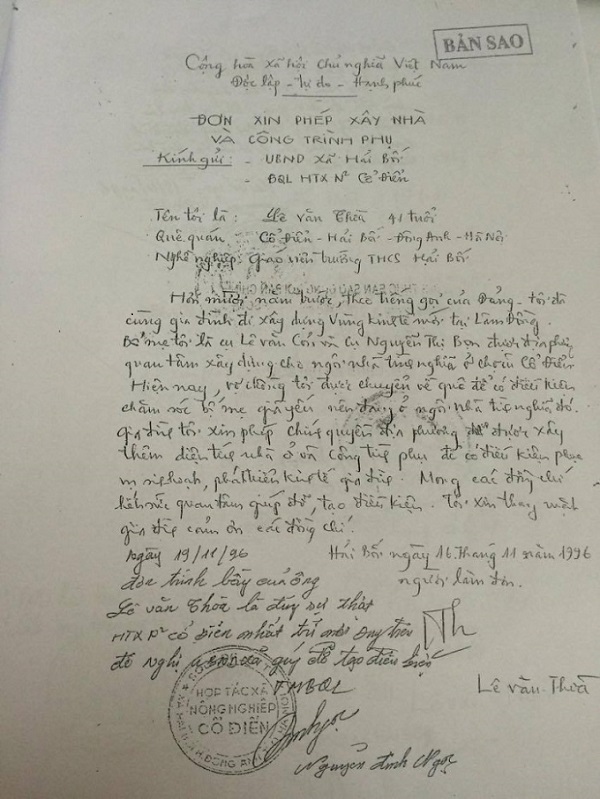 BẢN SAO
Cộng hòa xã hội chủ nghĩa Việt Nam
Độc lập - Tự do - Hạnh phúc
ĐƠN XIN PHÉP XÂY NHÀ
VÀ CÔNG TRÌNH PHỤ
Kính gửi: - UBND Xã Hải Bối
- BQL HTX N² Cổ Điển
Tên tôi là: Lê Văn Thoà 41 tuổi
Quê quán Cổ Điển - Hải Bối - Đông Anh - Hà Nội
Nghề nghiệp: Giáo viên trường THCS Hải Bối
Hơn mười năm trước, theo tiếng gọi của Đảng - tôi đã
cùng gia đình đi xây dựng vùng kinh tế mới tại Lâm Đồng.
Bố mẹ tôi là cụ Lê Văn và cụ Nguyễn Thị được địa phương
quan tâm xây dựng cho ngôi nhà tình nghĩa ở Cổ Điển
Hiện nay, vợ chồng tôi được chuyển về quê để có điều kiện
chăm sóc bố mẹ già yếu nên đang ở ngôi nhà tình nghĩa đó.
Gia đình tôi xin phép chính quyền địa phương để được xây
thêm diện tích nhà ở và công trình phụ để có điều kiện phục
vụ sinh hoạt, phát triển kinh tế gia đình. Mong các đồng chí
hết sức quan tâm giúp đỡ, tạo điều kiện. Tôi xin thay mặt
gia đình cảm ơn các đồng chí.
Ngày 19/11/96
Hải Bối ngày 16 tháng 11 năm 1996
đơn trình bày của ông
người làm đơn.
Lê Văn Thoà là đúng sự thật
HTX N² Cổ Điển nhất trí
đề nghị UBND xã giúp đỡ tạo điều kiện
TMBQL
Lê Văn Thoà
HỢP TÁC XÃ
NÔNG NGHIỆP
CỔ ĐIỂN
Nguyễn Đình Ngọc